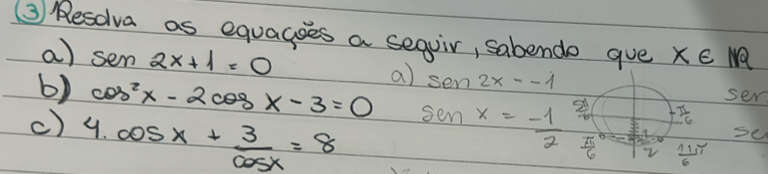 ③ Resolva as equações a seguir, sabendo que x ∈ ℝ
a) sen 2x + 1 = 0
b) cos²x - 2cos x - 3 = 0
c) 4. cos x + 3/cosx = 8
a) sen 2x = -1
sen x = -1/2
π/6
11π/6
sen